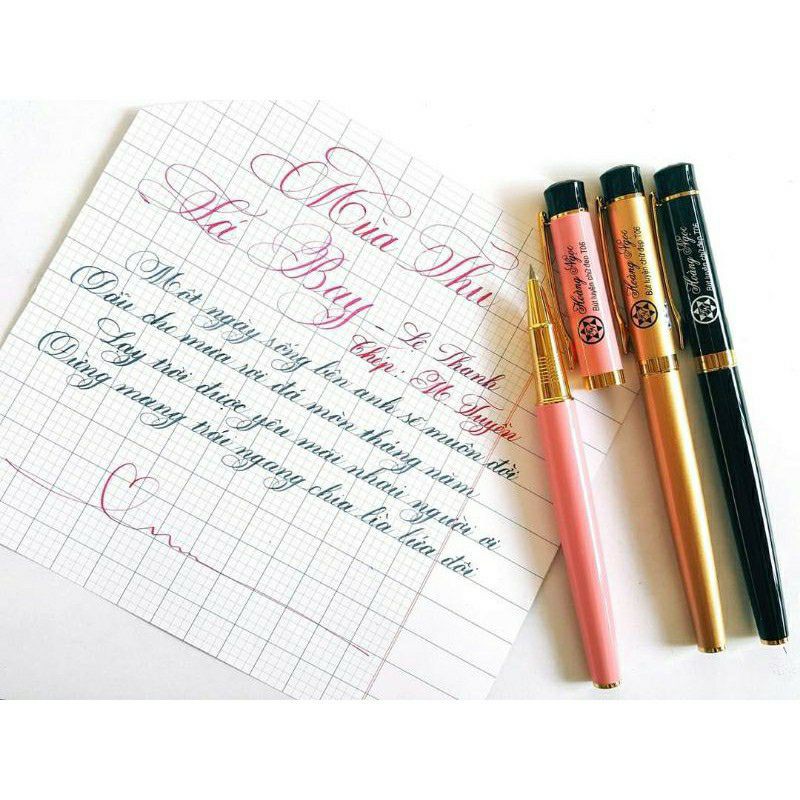 Mùa Thu
Lá Bay
- Lệ Thanh
Chép: M Tuyền
Một ngày sống bên anh sẽ muôn đời
Dẫu cho mưa rơi đá mòn tháng năm
Lạy trời được yêu mãi nhau người ơi
Đừng mang trái ngang chia lìa lứa đôi
Hoàng Ngọc
Bút luyện chữ đẹp T06
Hoàng Ngọc
Bút luyện chữ đẹp T06
Hoàng Ngọc
Bút luyện chữ đẹp T06